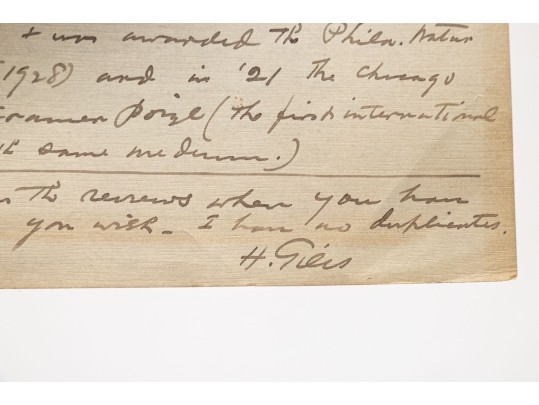 + was awarded the Phila. Water
(1928) and in '21 the Chicago
Prize (the first international
same medium.)
the reviews when you have
you wish - I have no duplicates.
H. Giles